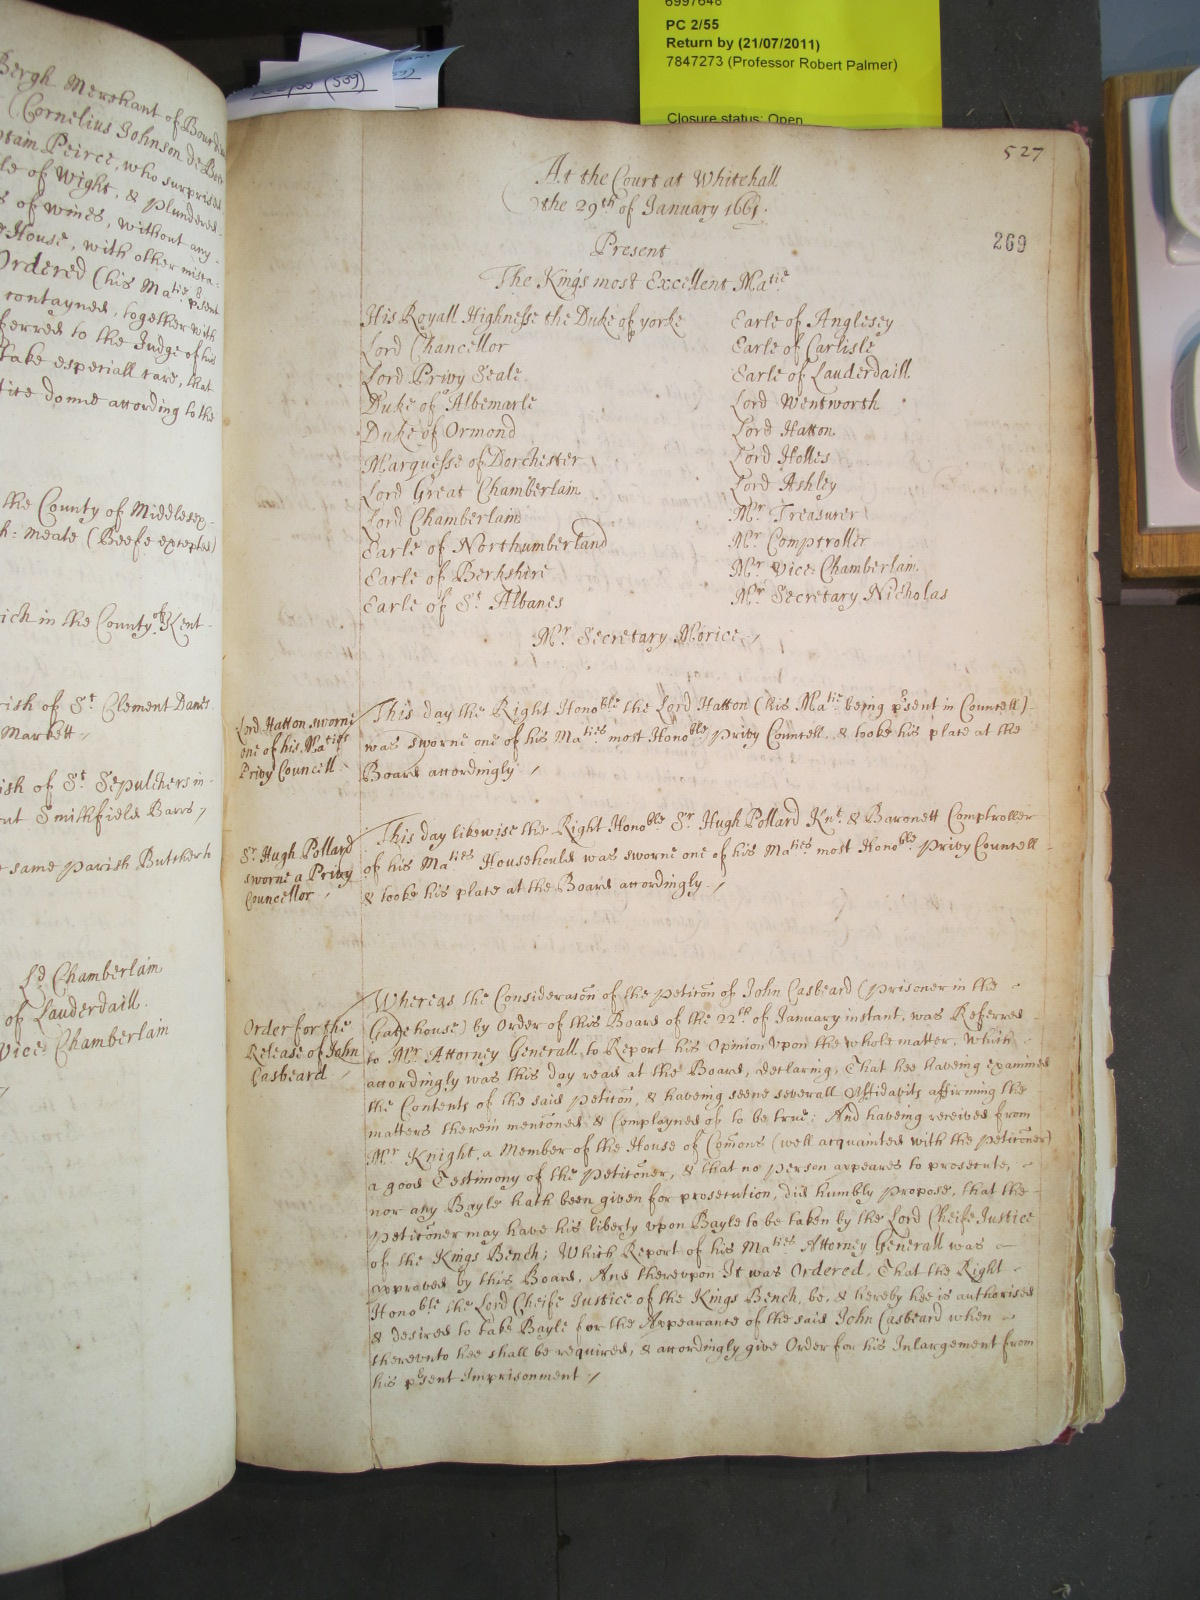 6997648
PC 2/55
Return by (21/07/2011)
7847273 (Professor Robert Palmer)
Closure status: Open
Bergh Merchant of
(Cornelius Johnson de
Peirce, who surprised
of Wight, & plundered
of wines, without any
House, with other
Ordered (his Matie psent
contayned, together with
to the Judge of his
take especiall care, that
donne according to the
the County of Middlesex
meate (Beefe excepted)
in the County of Kent
of St Clement Danes
Markett
of St Sepulchers in
Smithfield Barrs
same parish Butcher
Ld Chamberlain
of Lauderdaill
Vice Chamberlain
527
269
At the Court at Whitehall
the 29th of January 1661.
Present
The Kings most Excellent Matie
His Royall Highnesse the Duke of yorke
Lord Chancellor
Lord Privy Seale
Duke of Albemarle
Duke of Ormond
Marquesse of Dorchester
Lord Great Chamberlain
Lord Chamberlain
Earle of Northumberland
Earle of Berkshire
Earle of St Albanes
Earle of Anglesey
Earle of Carlisle
Earle of Lauderdaill
Lord Wentworth
Lord Hatton
Lord Holles
Lord Ashley
Mr Treasurer
Mr Comptroller
Mr Vice: Chamberlain
Mr Secretary Nicholas
Mr Secretary Morice
Lord Hatton sworne
one of his Maties
Privy Councell
This day the Right Honoble the Lord Hatton (his Matie being psent in Councell)
was sworne one of his Maties most Honoble Privy Councell, & tooke his place at the
Board accordingly
Sr Hugh Pollard
sworne a Privy
Councellor
This day likewise the Right Honoble Sr Hugh Pollard Knt & Baronett Comptroller
of his Maties Househould was sworne one of his Maties most Honoble Privy Councell
& tooke his place at the Board accordingly
Order for the
Release of John
Casbeard
Whereas the Consideracon of the peticon of John Casbeard (prisoner in the
Gatehouse) by Order of this Board of the 22th of January instant, was Referred
to Mr Attorney Generall, to Report his Opinion vpon the whole matter, which
accordingly was this day read at the Board, declaring, That hee haveing examined
the Contents of the said peticon, & haveing seene severall Affidavits affirming the
matters therein mentoned & Complayned of to be true; And haveing received from
Mr Knight, a Member of the House of Comons (well acquainted with the peticoner)
a good Testimony of the Peticoner, & that no person appeares to prosecute,
nor any Bayle hath been given for prosecution, did humbly propose, that the
peticoner may have his liberty vpon Bayle to be taken by the Lord Cheife Justice
of the Kings Bench; Which Report of his Maties Attorney Generall was
approved by this Board, And therevpon It was Ordered, That the Right
Honoble the Lord Cheife Justice of the Kings Bench, be, & hereby hee is authorised
& desired to take Bayle for the Appearance of the said John Casbeard when
therevnto hee shall be required, & accordingly give Order for his Inlargement from
his psent Imprisonment